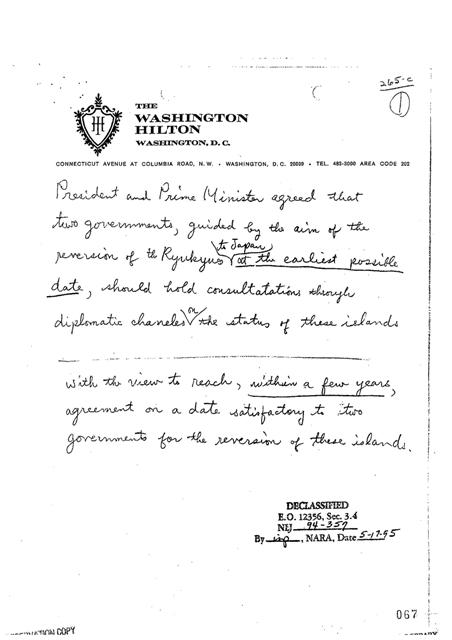 265-c
1
THE
WASHINGTON
HILTON
WASHINGTON, D.C.
CONNECTICUT AVENUE AT COLUMBIA ROAD, N.W. • WASHINGTON, D.C. 20009 • TEL. 483-3000 AREA CODE 202
President and Prime Minister agreed that
two governments, guided by the aim of the
reversion of the Ryukyus to Japan at the earliest possible
date, should hold consultatations through
diplomatic chaneles on the status of these islands
with the view to reach, within a few years,
agreement on a date satisfactory to two
governments for the reversion of these islands.
DECLASSIFIED
E.O. 12356, Sec. 3.4
NLJ 94-357
By , NARA, Date 5-17-95
067
COPY